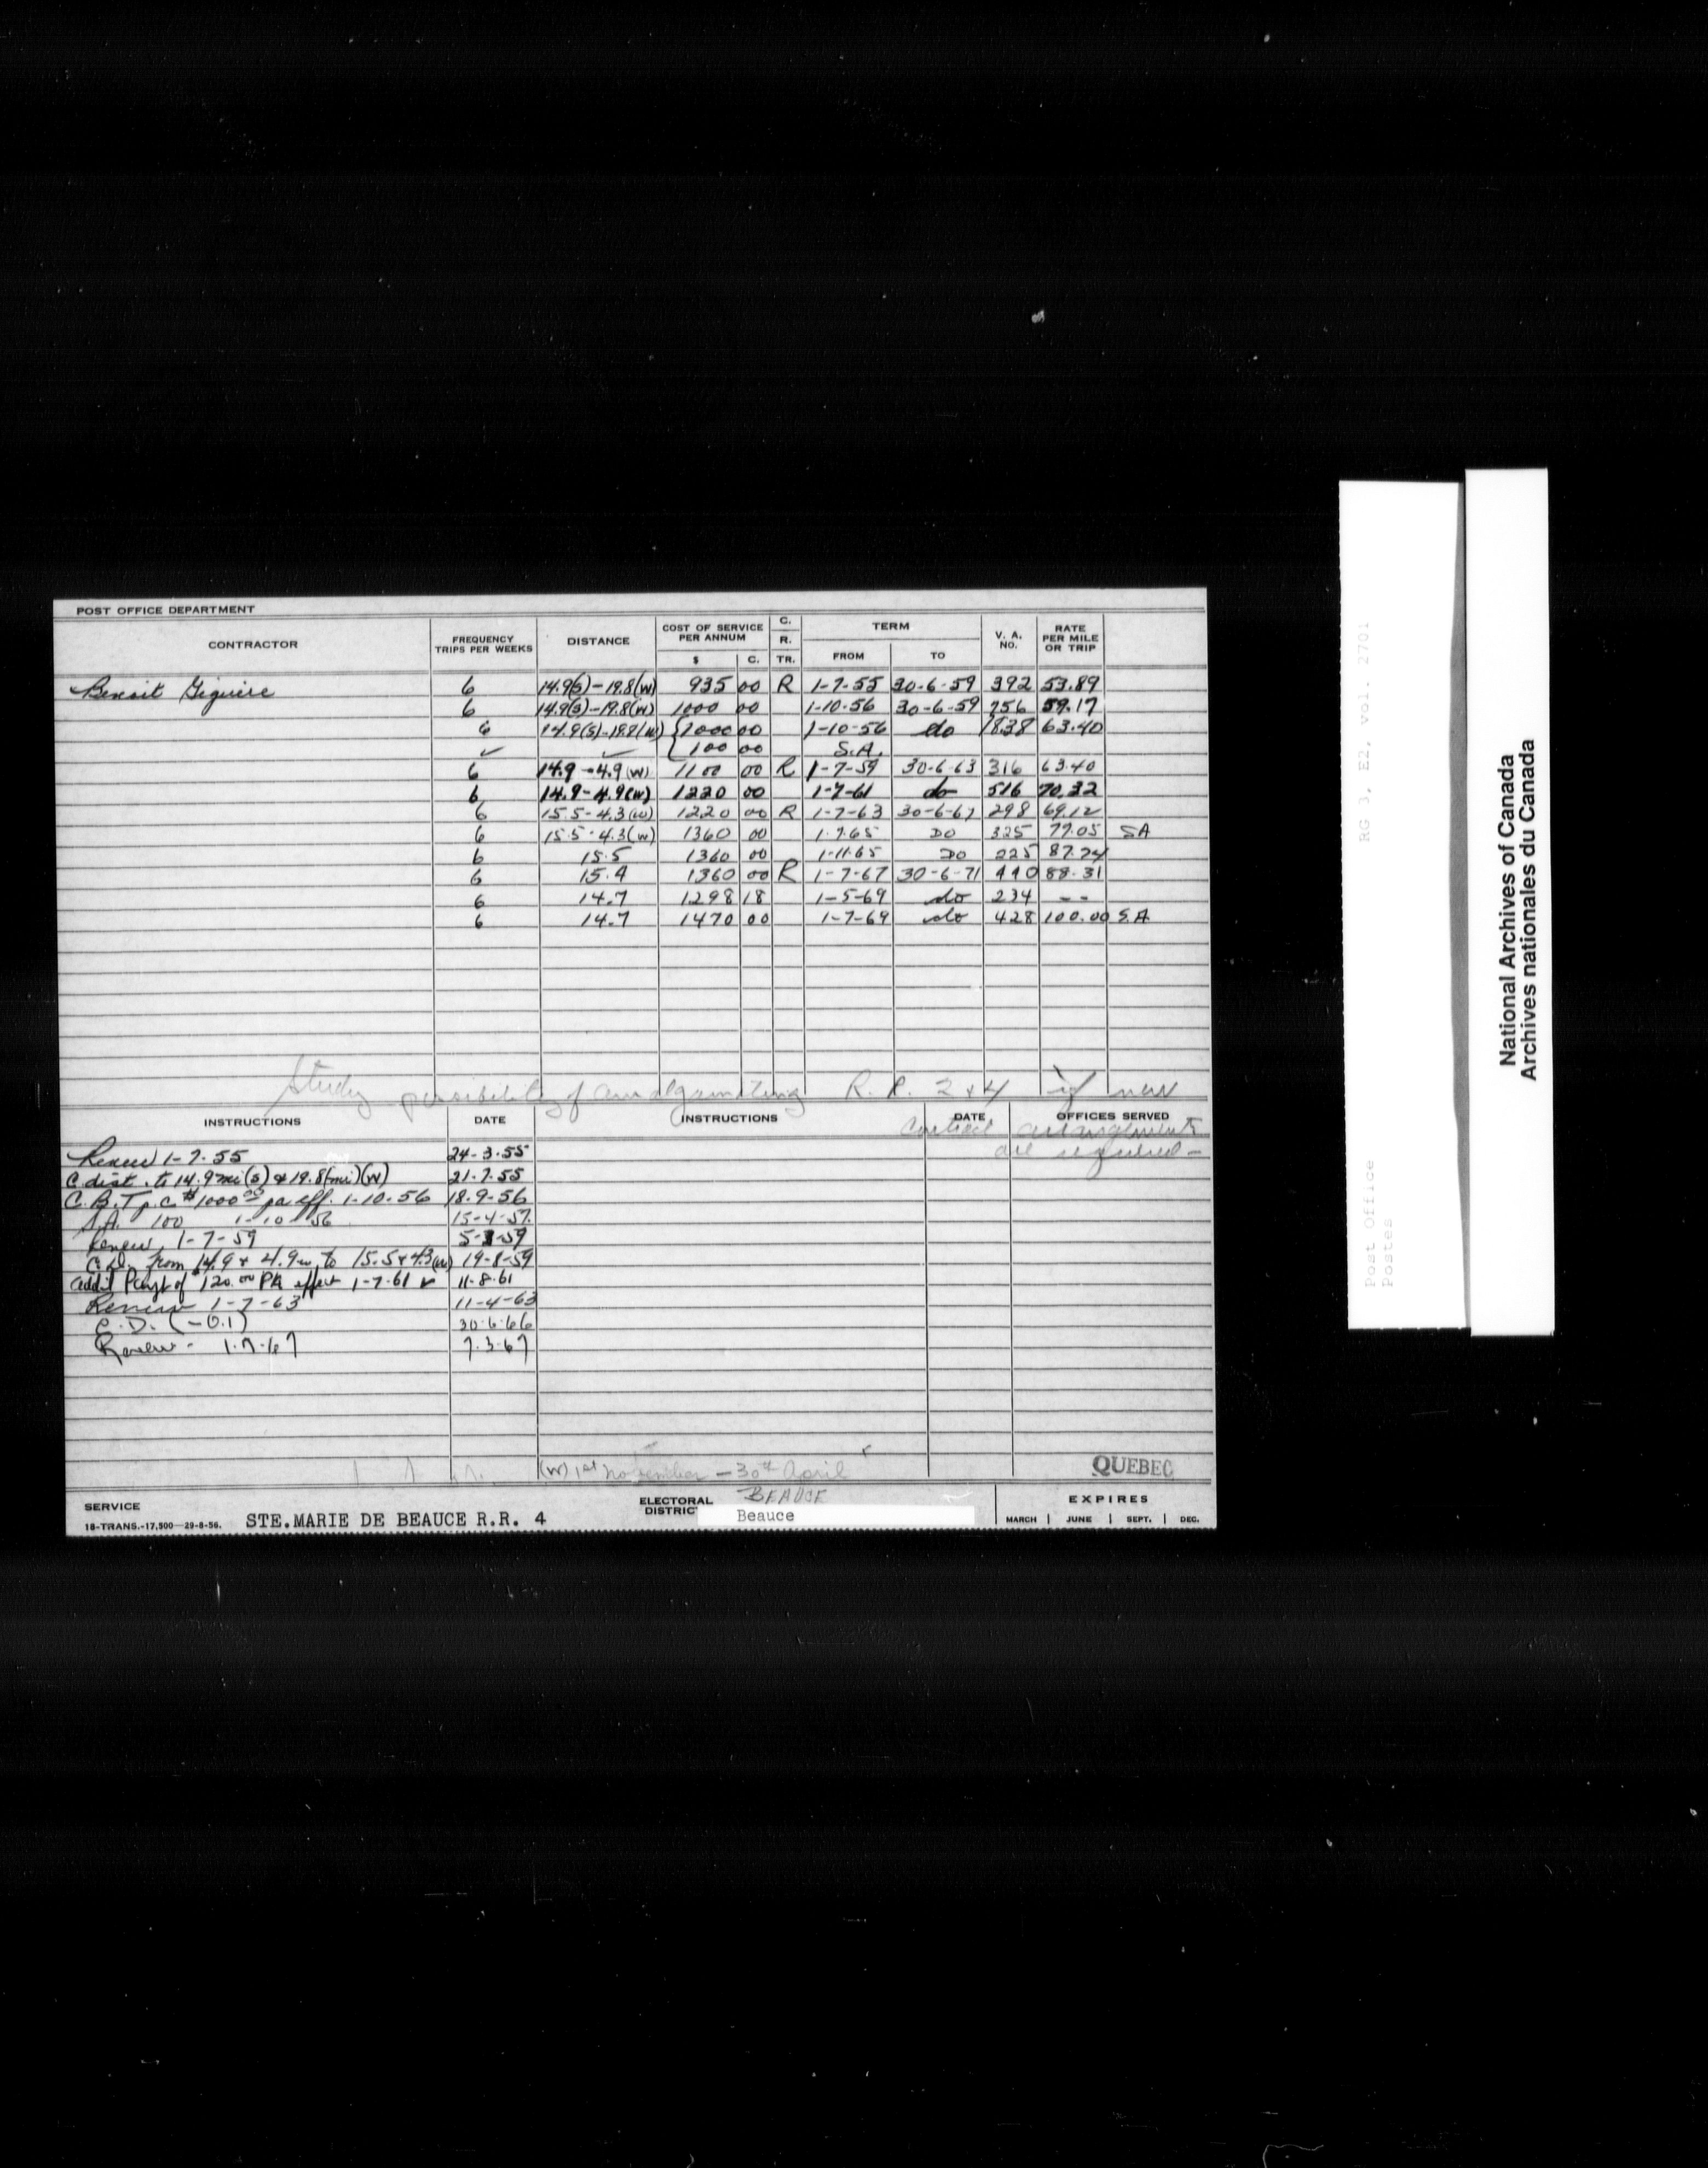 POST OFFICE DEPARTMENT
CONTRACTOR FREQUENCY TRIPS PER WEEKS DISTANCE COST OF SERVICE PER ANNUM $ C. C. R. TR. TERM FROM TO V. A. NO. RATE PER MILE OR TRIP
Benoit Giguère 6 14.9(S)-19.8(W) 935 00 R 1-7-55 30-6-59 392 53.89
6 14.9(S)-19.8(W) 1000 00 1-10-56 30-6-59 756 59.17
6 14.9(S)-19.8(W) {1000 00 1-10-56 do 1838 63.40
✓ ✓ {100 00 S.A.
6 14.9-4.9(W) 1100 00 R 1-7-59 30-6-63 316 63.40
6 14.9-4.9(W) 1220 00 1-7-61 do 516 70.32
6 15.5-4.3(W) 1220 00 R 1-7-63 30-6-67 298 69.12
6 15.5-4.3(W) 1360 00 1-7-65 DO 325 77.05 SA
6 15.5 1360 00 1-11-65 DO 225 87.74
6 15.4 1360 00 R 1-7-67 30-6-71 440 88.31
6 14.7 1298 18 1-5-69 do 234 --
6 14.7 1470 00 1-7-69 do 428 100.00 S.A
Study possibility of amalgamating R.R. 2 & 4 if new
contract arrangements
are required -
INSTRUCTIONS DATE INSTRUCTIONS DATE OFFICES SERVED
Renew 1-7-55 24-3-55
C. dist. to 14.9 mi (S) & 19.8 (mi) (W) 21-7-55
C.B.T p.c $1000 00 pa eff. 1-10-56 18-9-56
S.A. 100 1-10-56 15-4-57
Renew 1-7-59 5-3-59
C.D. from 14.9 & 4.9w to 15.5 & 4.3(w) 19-8-59
Add'l Payt of $120.00 PA effect 1-7-61 ✓ 11-8-61
Renew 1-7-63 11-4-63
C.D. (-0.1) 30-6-66
Renew - 1-7-67 7-3-67
(W) 1st November - 30th April
QUEBEC
SERVICE STE.MARIE DE BEAUCE R.R. 4 ELECTORAL DISTRIC BEAUCE
Beauce
EXPIRES
MARCH | JUNE | SEPT. | DEC.
18-TRANS.-17,500-29-8-56.
RG 3, E2, vol. 2701
Post Office
Postes
National Archives of Canada
Archives nationales du Canada